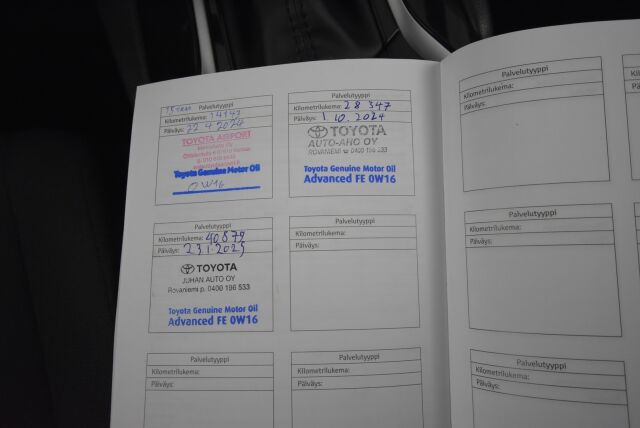 Palvelutyyppi
Kilometrilukema: 14147
Päiväys: 22.4.2024
TOYOTA AIRPORT
Toyota Genuine Motor Oil
0W16
Palvelutyyppi
Kilometrilukema: 28 347
Päiväys: 1.10.2024
TOYOTA
AUTO-AHO OY
ROVANIEMI ☎ 0400 196 533
Toyota Genuine Motor Oil
Advanced FE 0W16
Palvelutyyppi
Kilometrilukema: 40879
Päiväys: 23.1.2025
TOYOTA
JUHAN AUTO OY
Rovaniemi p. 0400 196 533
Toyota Genuine Motor Oil
Advanced FE 0W16
Palvelutyyppi
Kilometrilukema:
Päiväys:
Palvelutyyppi
Kilometrilukema:
Päiväys:
Palvelutyyppi
Kilometrilukema:
Päiväys:
Palvelutyyppi
Kilometrilukema:
Päiväys:
Palvelutyyppi
Kilometrilukema:
Päiväys:
Palvelutyyppi
Kilometrilukema:
Päiväys: